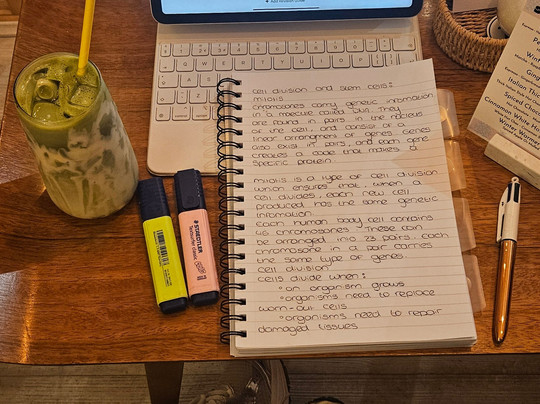 cell division and stem cells:
mitosis
chromosomes carry genetic information
in a molecule called DNA. They
are found in pairs in the nucleus
of the cell, and consist of a
linear arrangment of genes. Genes
also exist in pairs, and each gene
creates a code that makes a
specific protein.
mitosis is a type of cell division
which ensures that, when a
cell divides, each new cell
produced has the same genetic
information.
Each human body cell contains
46 chromosomes. These can
be arranged into 23 pairs. Each
chromosome in a pair carries
the same type of genes.
cell division
cells divide when:
°an organism grows
°organisms need to replace
worn-out cells
°organisms need to repair
damaged tissues
STAEDTLER
Textsurfer classic
Italian
Spiced
Cinnamon White
Winter Warmer